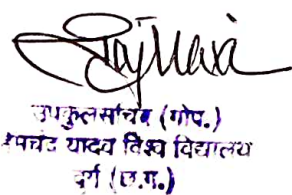 उपकुलसचिव (गोप.)
हेमचंद यादव विश्व विद्यालय
दुर्ग (छ.ग.)